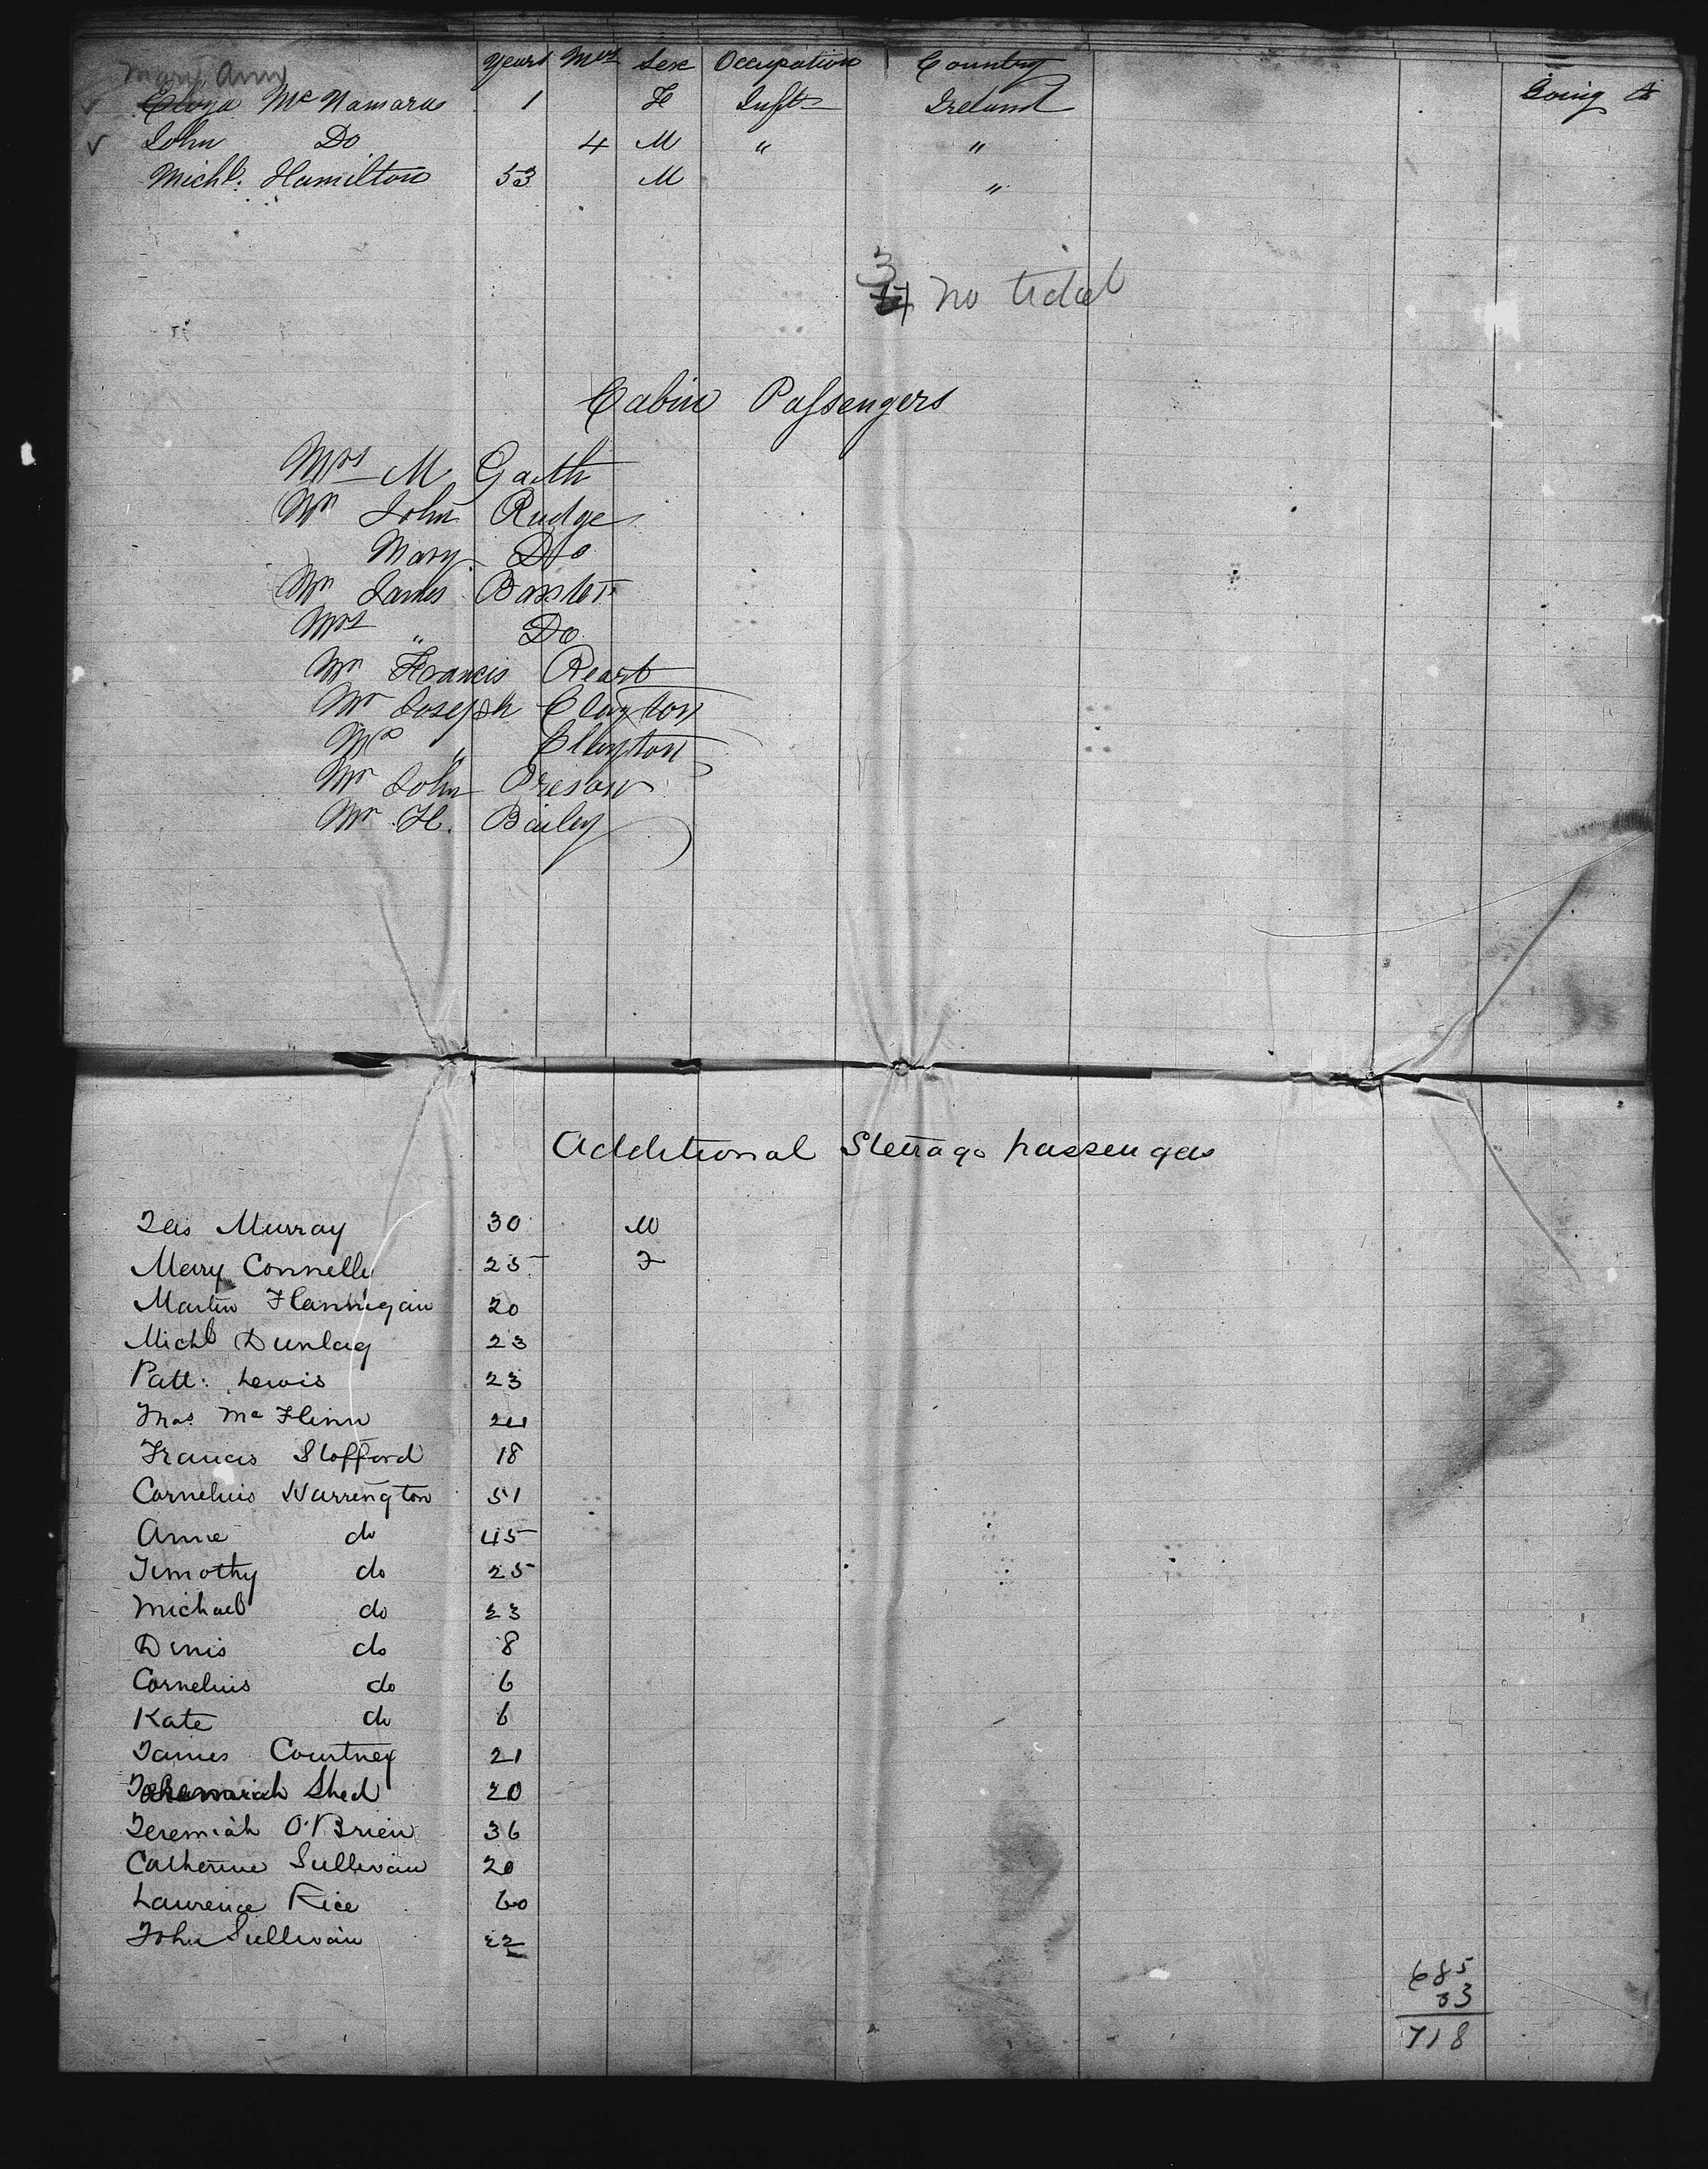 Years Mos Sex Occupation Country Going to
Mary Ann
McNamara 1 F Inft Ireland
John Do 4 M " "
Michl: Hamilton 53 M "
3
No tickt
Cabin Passengers
Mrs M Garth
Mr John Rudge
Mary Do
Mr James
Mrs " Do
Mr Francis
Mr Joseph Clayton
Mrs " Clayton
Mr John
Mr H. Bailey
Additional Steerage passengers
Jas Murray 30 M
Mary Connelly 25 F
Martin Flannigan 20
Michl Dunlay 23
Patt: Lewis 23
Thos McFlinn 24
Francis Stofford 18
Cornelius Warrington 51
Anne do 45
Timothy do 25
Michael do 23
Denis do 8
Cornelius do 6
Kate do 6
James Courtney 21
Shed 20
Jeremiah O'Brien 36
Catherine Sullivan 20
Laurence Rice 60
John Sullivan 22
685
33
718